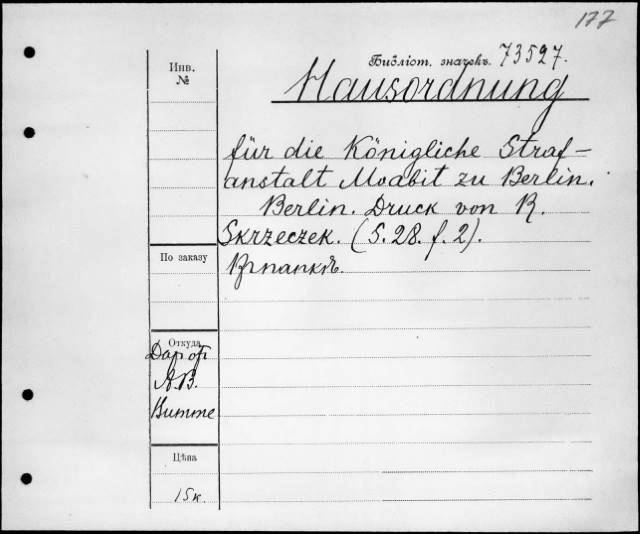 177
Библіот. значекъ 73527.
Инв.
№
Hausordnung
für die Königliche Straf-
anstalt Moabit zu Berlin.
Berlin. Druck von R.
Skrzeczek. (S. 28. f. 2).
Вр папкѣ.
По заказу
Откуда
Дар от
А.В.
Витте
Цѣна
15к.